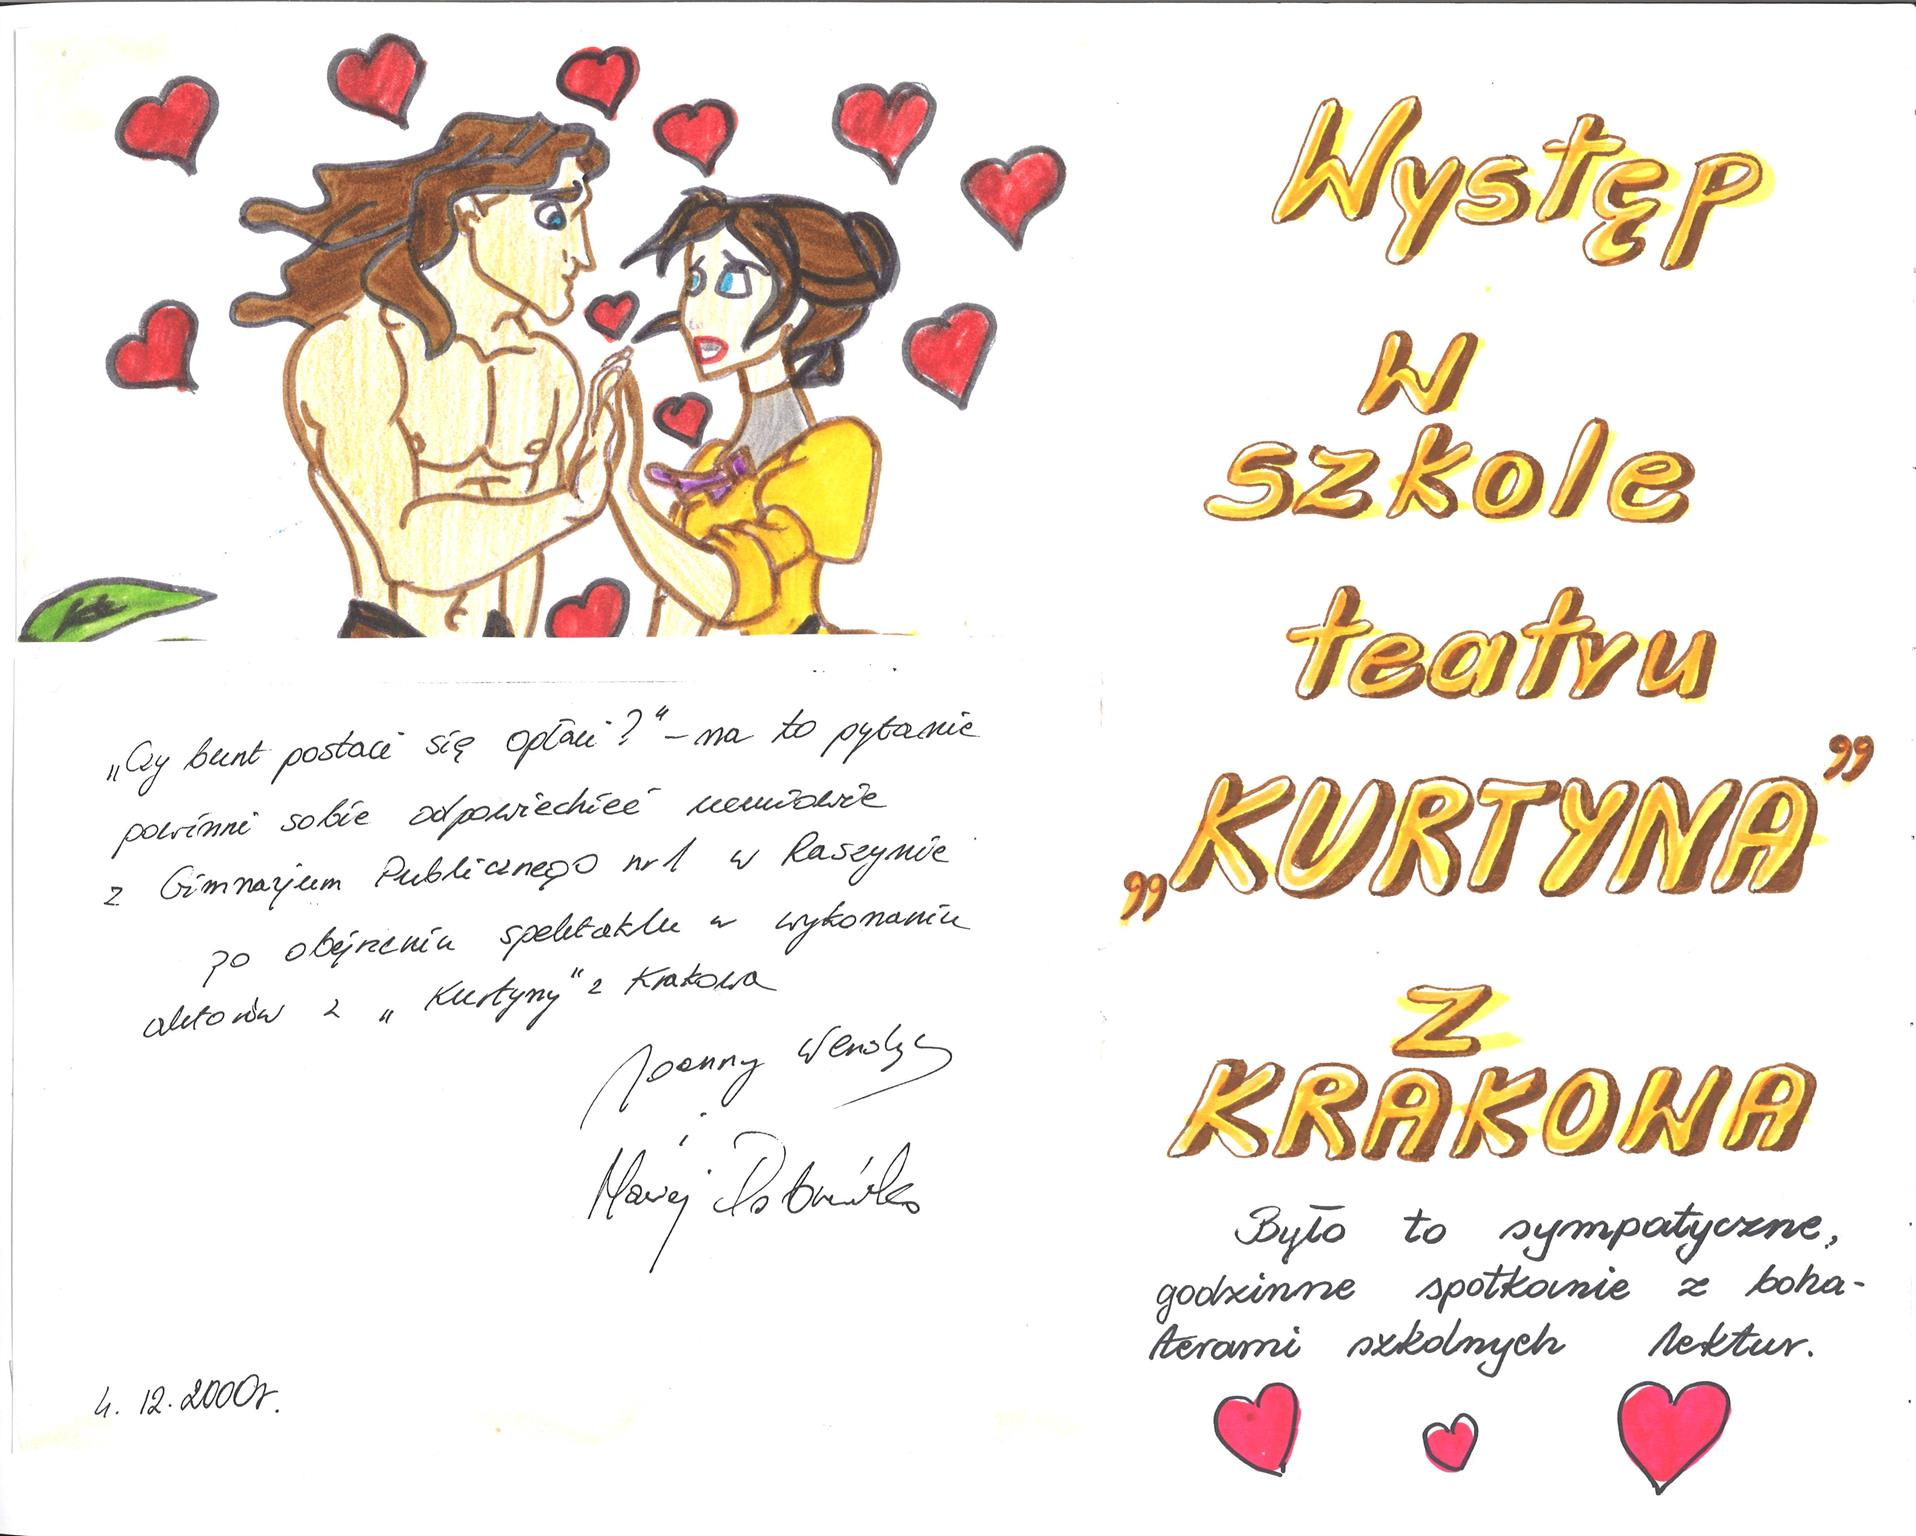 „Czy bunt postaci się opłaci?" – na to pytanie
powinni sobie odpowiedzieć uczniowie
z Gimnazjum Publicznego nr 1 w Raszynie
po obejrzeniu spektaklu w wykonaniu
aktorów z „Kurtyny" z Krakowa
Joanny
i
Maciej
4. 12. 2000r.
Występ
w
szkole
teatru
„KURTYNA”
z
KRAKOWA
Było to sympatyczne,
godzinne spotkanie z boha-
terami szkolnych lektur.